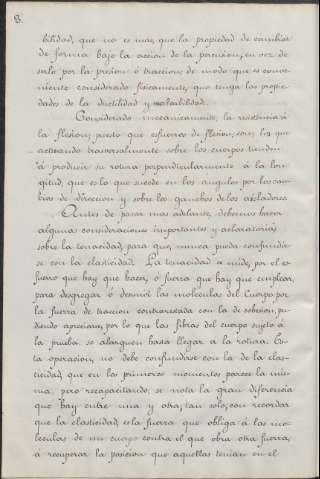 8.
bilidad, que no es mas, que la propiedad de cambiar
de forma bajo la accion de la percusion, en vez de
serlo por la presion ó traccion; de modo que es conve-
niente considerado fisicamente, que tenga las propie-
dades de la ductilidad y maleabilidad.
Considerado mecánicamente, la resistencia á
la flexion; puesto que esfuerzos de flexion, son, los que
actuando trasversalmente sobre los cuerpos tienden
á producir su rotura perpendicularmente á la lon-
gitud, que es lo que sucede en los angulos por los cam-
bios de direccion y sobre los ganchos de los aisladores
Antes de pasar mas adelante, debemos hacer
algunas consideraciones importantes y aclaratorias
sobre la tenacidad, para que, nunca pueda confundir-
se con la elasticidad. La tenacidad se mide, por el es-
fuerzo que hay que hacer, ó fuerza que hay que emplear,
para desgregar ó desunir las moleculas del Cuerpo por
la fuerza de traccion contrarestada con la de cohesion, pu-
diendo apreciarse, por lo que las fibras del cuerpo sujeto á
la prueba, se alarguen hasta llegar á la rotura. Es-
ta operacion, no debe confundirse con la de la elas-
ticidad, que en los primeros momentos parece la mis-
ma, pero recapacitando, se nota la gran diferencia
que hay entre una y otra, tan solo, con recordar
que la elasticidad, es la fuerza que obliga á las mo-
leculas de un cuerpo contra el que obra otra fuerza,
á recuperar la posicion que aquellas tenian en el